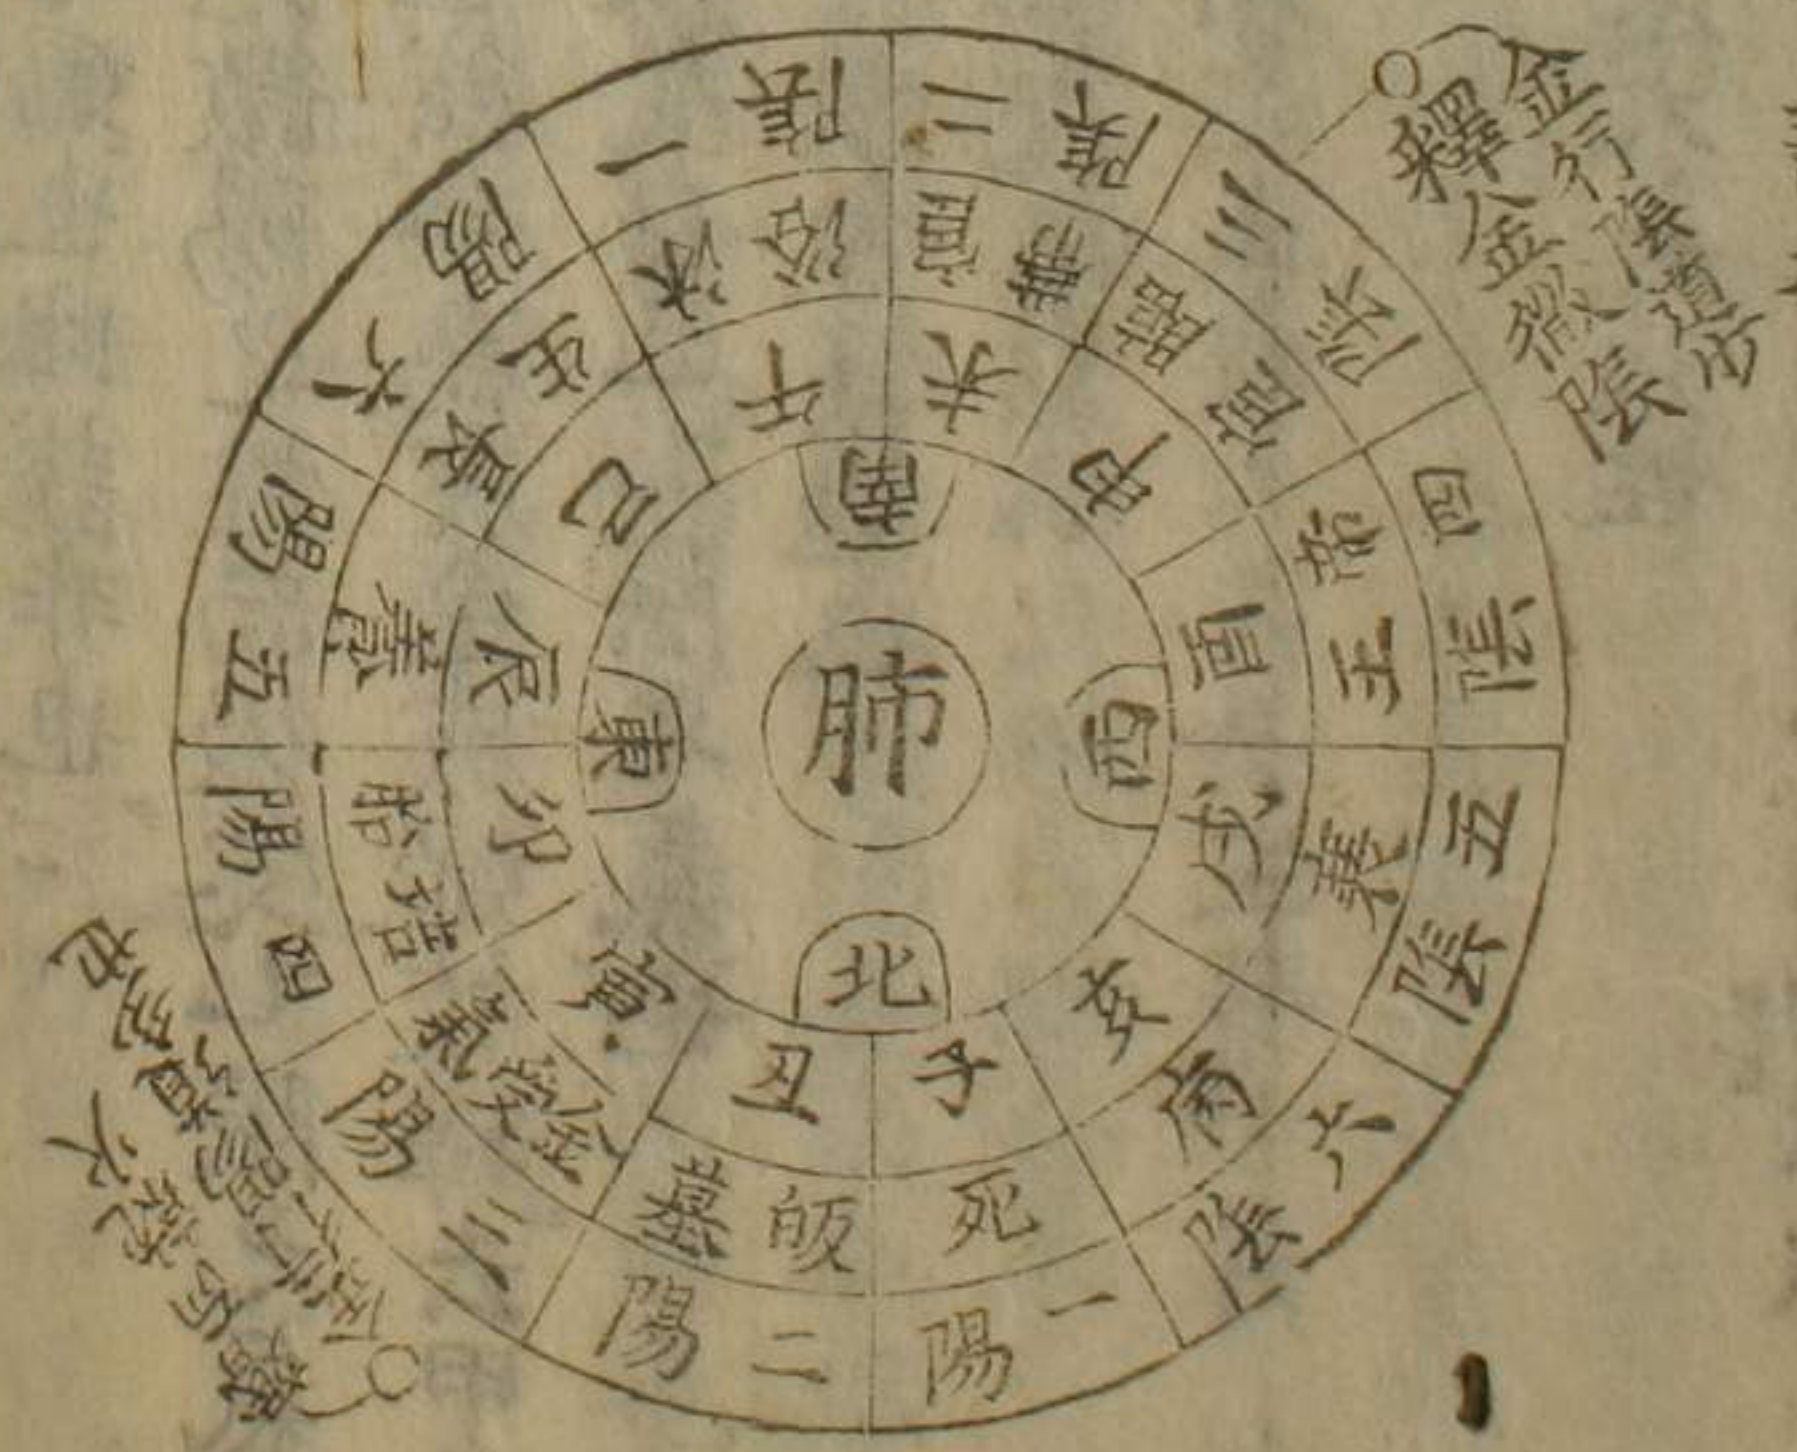 肺
南
西
北
東
子
丑
寅
卯
辰
巳
午
未
申
酉
戌
亥
死
皈墓
金受氣
培胎
養
長生
沐浴
帶
臨官
帝王
衰
病
一陽
二陽
三陽
四陽
五陽
六陽
一陰
二陰
三陰
四陰
五陰
六陰
金行陰道步
釋金微陰